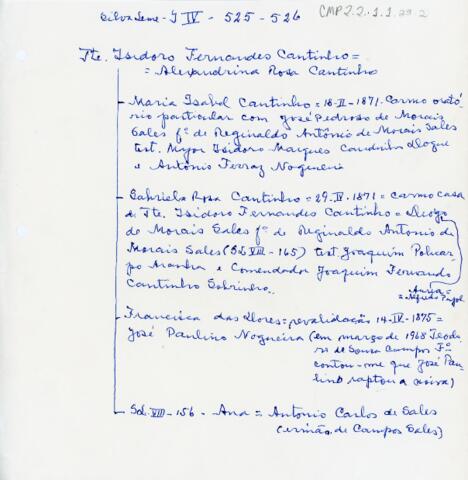 Silva Leme - J IV - 525 - 526
CMP 2.2.1.1.29.2
Tte. Isidoro Fernandes Cantinho =
= Alexandrina Rosa Cantinho
- Maria Isabel Cantinho = 18-II-1871. Carmo orató
rio particular com José Pedroso de Morais
Sales fº de Reginaldo Antônio de Morais Sales
test. Isidoro Marques
e Antônio Ferraz Nogueira
- Gabriela Rosa Cantinho = 29.IV.1871 = Carmo casa
de Tte. Isidoro Fernandes Cantinho = Diogo
de Morais Sales fº de Reginaldo Antonio de
Morais Sales (S.L VIII - 165) test. Joaquim Policar
po Aranha e Comendador Joaquim Fernando
Cantinho Sobrinho.
= Alfredo
- Francisca das Dores = revalidação 14-IV-1875 =
José Paulino Nogueira (em março de 1968 Teodo
ro de Sousa Campos Fº
contou-me que José Pau
lino raptou a noiva)
- Sd. VIII - 156 - Ana = Antonio Carlos de Sales
(irmão de Campos Sales)